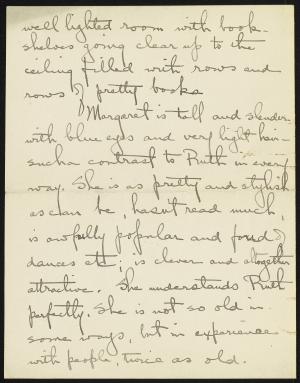 well lighted room with book-
shelves going clear up to the
ceiling filled with rows and
rows of pretty books
Margaret is tall and slender
with blue eyes and very light hair -
such a contrast to Ruth in every
way. She is as pretty and stylish
as can be, hasn't read much,
is awfully popular and fond of
dances etc; is clever and altogether
attractive. She understands Ruth
perfectly. She is not so old in
some ways, but in experience
with people, twice as old.